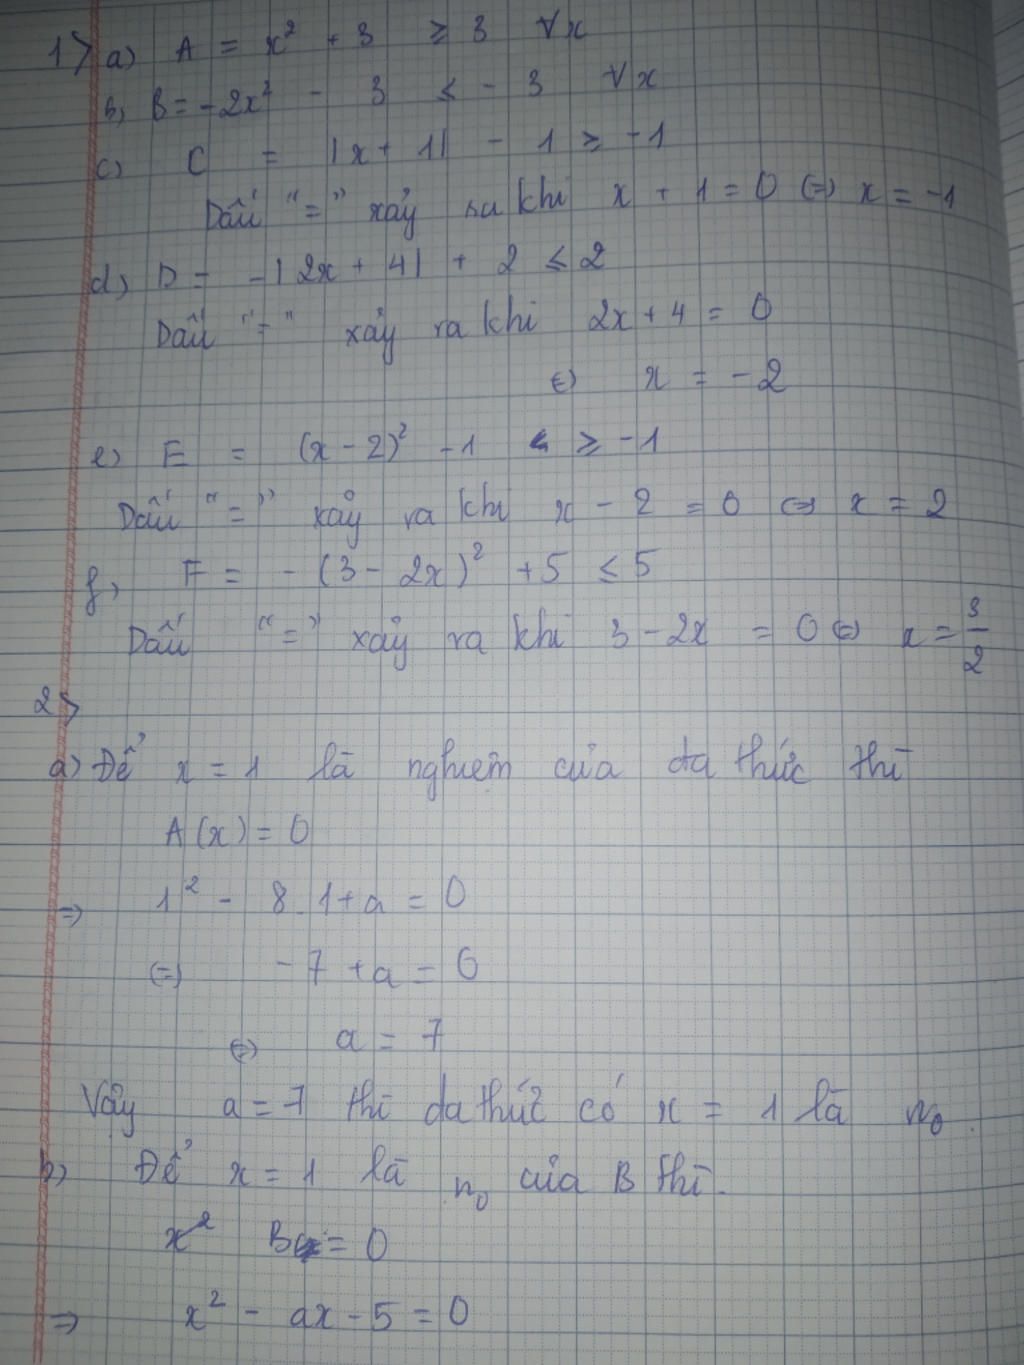 1> a) A = x² + 3 ≥ 3 ∀x
b, B = -2x² - 3 ≤ - 3 ∀x
c) C = |x + 1| - 1 ≥ -1
Dấu "=" xảy ra khi x + 1 = 0 (=) x = -1
d) D = -|2x + 4| + 2 ≤ 2
Dấu "=" xảy ra khi 2x + 4 = 0
(=) x = -2
e) E = (x - 2)² - 1 ≥ -1
Dấu "=" xảy ra khi x - 2 = 0 (=) x = 2
f, F = - (3 - 2x)² + 5 ≤ 5
Dấu "=" xảy ra khi 3 - 2x = 0 (=) x = 3/2
2>
a) Để x = 1 là nghiệm của đa thức thì
A(x) = 0
=) 1² - 8.1 + a = 0
(=) -7 + a = 0
(=) a = 7
Vậy a = 7 thì đa thức có x = 1 là n₀.
b) Để x = 1 là n₀ của B thì.
x² B = 0
=) x² - ax - 5 = 0